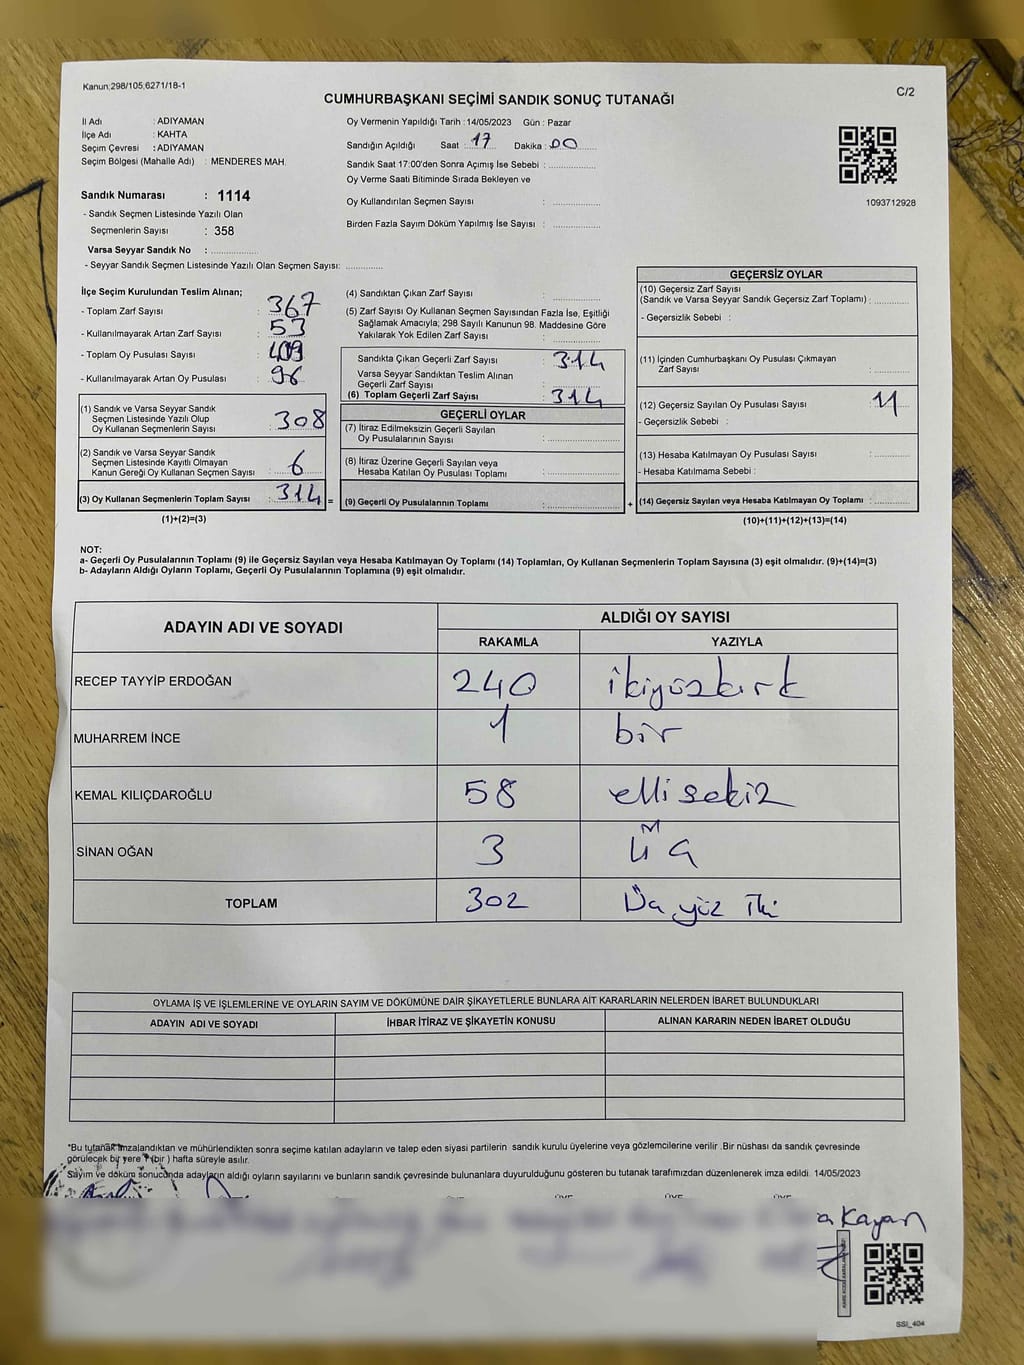 Kanun;298/105;6271/18-1
C/2
CUMHURBAŞKANI SEÇİMİ SANDIK SONUÇ TUTANAĞI
İl Adı : ADIYAMAN
İlçe Adı : KAHTA
Seçim Çevresi : ADIYAMAN
Seçim Bölgesi (Mahalle Adı) : MENDERES MAH.
Sandık Numarası : 1114
- Sandık Seçmen Listesinde Yazılı Olan
Seçmenlerin Sayısı : 358
Varsa Seyyar Sandık No : ..................
- Seyyar Sandık Seçmen Listesinde Yazılı Olan Seçmen Sayısı: ..............
Oy Vermenin Yapıldığı Tarih : 14/05/2023 Gün : Pazar
Sandığın Açıldığı Saat : 17 Dakika : 00
Sandık Saat 17:00'den Sonra Açımış İse Sebebi : ..................
Oy Verme Saati Bitiminde Sırada Bekleyen ve
Oy Kullandırılan Seçmen Sayısı : ..................
Birden Fazla Sayım Döküm Yapılmış İse Sayısı : ..................
1093712928
İlçe Seçim Kurulundan Teslim Alınan;
- Toplam Zarf Sayısı : 367
- Kullanılmayarak Artan Zarf Sayısı : 53
- Toplam Oy Pusulası Sayısı : 409
- Kullanılmayarak Artan Oy Pusulası : 96
(1) Sandık ve Varsa Seyyar Sandık
Seçmen Listesinde Yazılı Olup
Oy Kullanan Seçmenlerin Sayısı : 308
(2) Sandık ve Varsa Seyyar Sandık
Seçmen Listesinde Kayıtlı Olmayan
Kanun Gereği Oy Kullanan Seçmen Sayısı : 6
(3) Oy Kullanan Seçmenlerin Toplam Sayısı : 314 =
(1)+(2)=(3)
(4) Sandıktan Çıkan Zarf Sayısı : ..................
(5) Zarf Sayısı Oy Kullanan Seçmen Sayısından Fazla İse, Eşitliği
Sağlamak Amacıyla; 298 Sayılı Kanunun 98. Maddesine Göre
Yakılarak Yok Edilen Zarf Sayısı : ..................
Sandıkta Çıkan Geçerli Zarf Sayısı : 314
Varsa Seyyar Sandıktan Teslim Alınan
Geçerli Zarf Sayısı : ..................
(6) Toplam Geçerli Zarf Sayısı : 314
GEÇERLİ OYLAR
(7) İtiraz Edilmeksizin Geçerli Sayılan
Oy Pusulalarının Sayısı : ..................
(8) İtiraz Üzerine Geçerli Sayılan veya
Hesaba Katılan Oy Pusulası Toplamı : ..................
(9) Geçerli Oy Pusulalarının Toplamı : .................. +
GEÇERSİZ OYLAR
(10) Geçersiz Zarf Sayısı
(Sandık ve Varsa Seyyar Sandık Geçersiz Zarf Toplamı) : ..........
- Geçersizlik Sebebi :
(11) İçinden Cumhurbaşkanı Oy Pusulası Çıkmayan
Zarf Sayısı : ..........
(12) Geçersiz Sayılan Oy Pusulası Sayısı : 11
- Geçersizlik Sebebi :
(13) Hesaba Katılmayan Oy Pusulası Sayısı : ..........
- Hesaba Katılmama Sebebi :
(14) Geçersiz Sayılan veya Hesaba Katılmayan Oy Toplamı : ..........
(10)+(11)+(12)+(13)=(14)
NOT:
a- Geçerli Oy Pusulalarının Toplamı (9) ile Geçersiz Sayılan veya Hesaba Katılmayan Oy Toplamı (14) Toplamları, Oy Kullanan Seçmenlerin Toplam Sayısına (3) eşit olmalıdır. (9)+(14)=(3)
b- Adayların Aldığı Oyların Toplamı, Geçerli Oy Pusulalarının Toplamına (9) eşit olmalıdır.
ADAYIN ADI VE SOYADI ALDIĞI OY SAYISI
RAKAMLA YAZIYLA
RECEP TAYYİP ERDOĞAN 240 ikiyüzkırk
MUHARREM İNCE 1 bir
KEMAL KILIÇDAROĞLU 58 ellisekiz
SİNAN OĞAN 3 üç
TOPLAM 302 Üç yüz iki
OYLAMA İŞ VE İŞLEMLERİNE VE OYLARIN SAYIM VE DÖKÜMÜNE DAİR ŞİKAYETLERLE BUNLARA AİT KARARLARIN NELERDEN İBARET BULUNDUKLARI
ADAYIN ADI VE SOYADI İHBAR İTİRAZ VE ŞİKAYETİN KONUSU ALINAN KARARIN NEDEN İBARET OLDUĞU
*Bu tutanak imzalandıktan ve mühürlendikten sonra seçime katılan adayların ve talep eden siyasi partilerin sandık kurulu üyelerine veya gözlemcilerine verilir .Bir nüshası da sandık çevresinde
görülecek bir yere 1 (bir ) hafta süreyle asılır.
Sayım ve döküm sonucunda adayların aldığı oyların sayılarını ve bunların sandık çevresinde bulunanlara duyurulduğunu gösteren bu tutanak tarafımızdan düzenlenerek imza edildi. 14/05/2023
ÜYE ÜYE ÜYE
Kayan
SSI_404